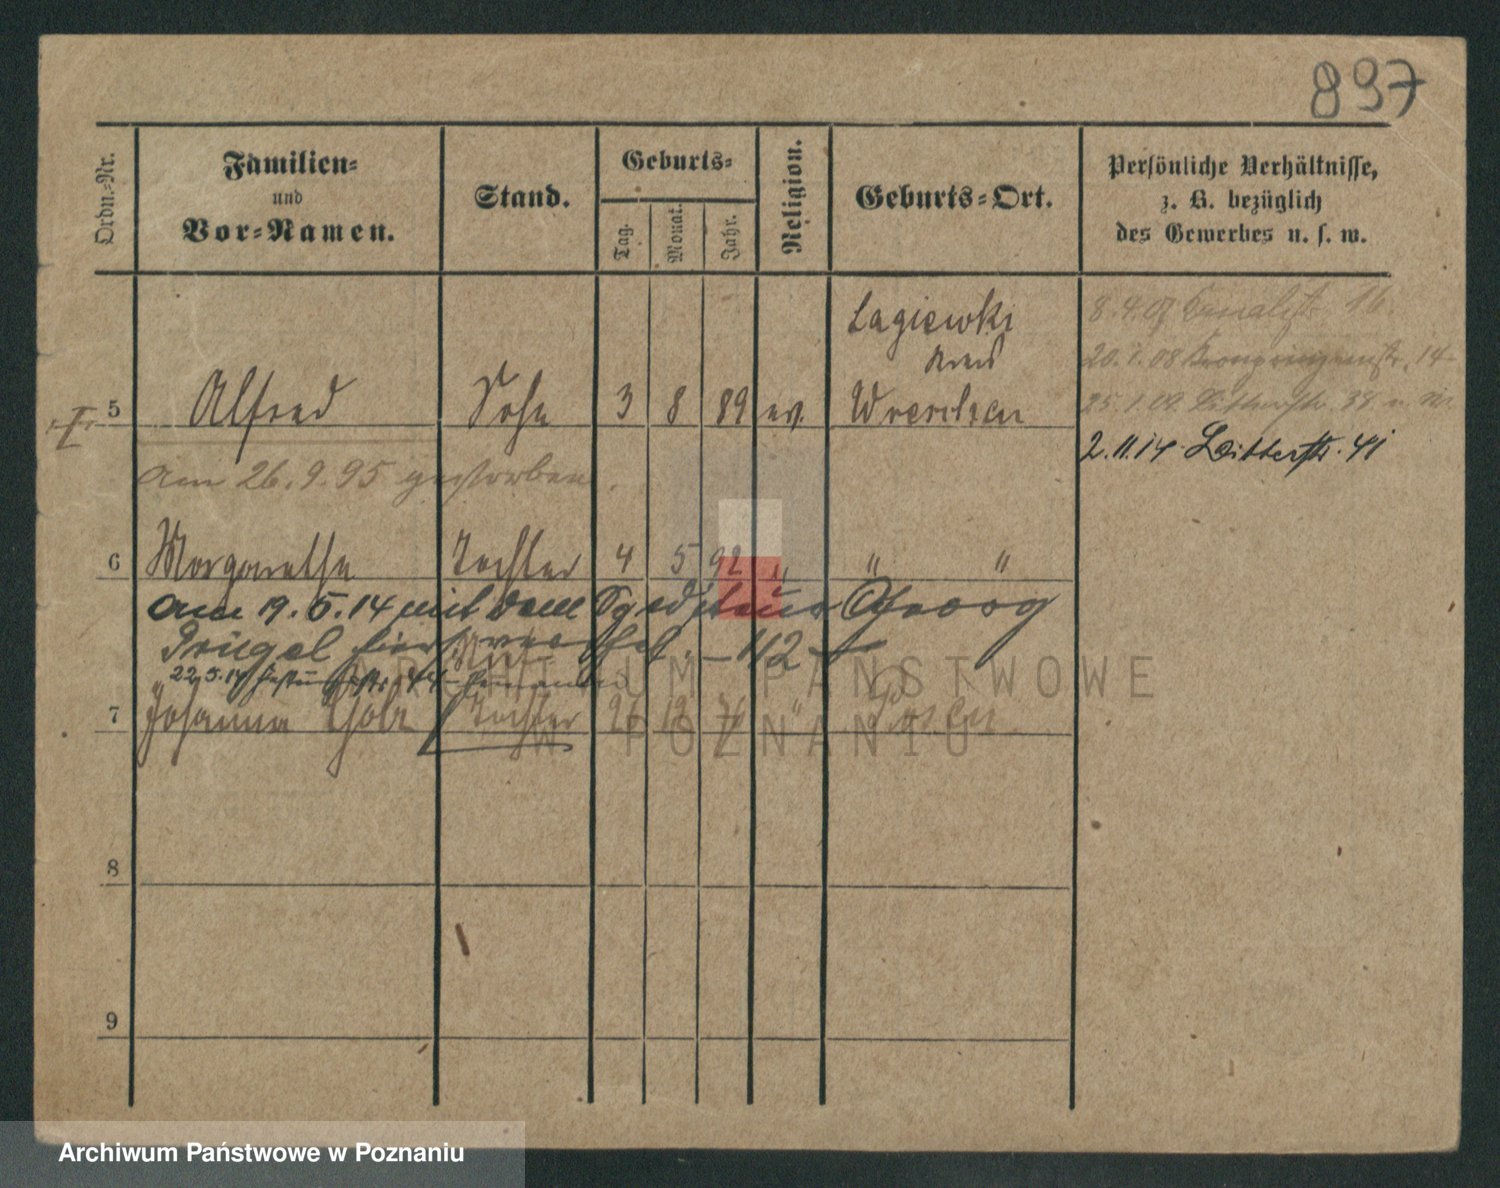 897
Ordn.-Nr.
Familien-
und
Vor-Namen.
Stand.
Geburts-
Tag.
Monat.
Jahr.
Religion.
Geburts-Ort.
Persönliche Verhältnisse,
z. B. bezüglich
des Gewerbes u. s. w.
Lagiewki
Kreis
5 Alfred Sohn 3 8 89 ev. Wreschen
am 26.9.95 gestorben.
8.4.07 16.
20.1.08 Kronprinzenstr. 14
25.1.09 Bitterstr. 38
2.11.14 Bitterstr. 41
6 Margarethe Tochter 4 5 92 " " "
am 19.5.14 mit dem Georg
Prügel hier verh. – 112
22.5.14
7 Johanna Tochter 26 12 " Posen
8
9
ARCHIWUM PAŃSTWOWE
W POZNANIU
Archiwum Państwowe w Poznaniu